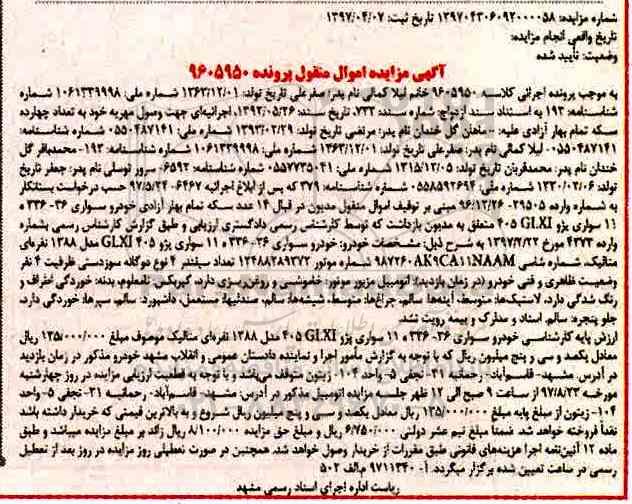 شماره مزایده: ۱۳۹۷۰۴۳۰۶۰۹۲۰۰۰۰۵۸ تاریخ ثبت: ۱۳۹۷/۰۴/۰۷
تاریخ واقعی انجام مزایده:
وضعیت: تأیید شده
آگهی مزایده اموال منقول پرونده ۹۶۰۵۹۵۰
به موجب پرونده اجرائی کلاسه ۹۶۰۵۹۵۰ خانم لیلا کمالی نام پدر: صفرعلی تاریخ تولد: ۱۳۶۳/۱۲/۰۱ شماره ملی: ۱۰۶۱۳۳۹۹۹۸ شماره
شناسنامه: ۱۹۳ به استناد سند ازدواج: شماره سند: ۷۳۳، تاریخ سند: ۱۳۹۲/۰۵/۲۶، اجرائیه‌ای جهت وصول مهریه خود به تعداد چهارده
سکه تمام بهار آزادی علیه: - ماهان گل خندان نام پدر: مرتضی تاریخ تولد: ۱۳۹۳/۰۲/۲۹ شماره ملی: ۰۵۵۰۴۸۷۱۴۱ شماره شناسنامه:
۰۵۵۰۴۸۷۱۴۱- لیلا کمالی نام پدر: صفرعلی تاریخ تولد: ۱۳۶۳/۱۲/۰۱ شماره ملی: ۱۰۶۱۳۳۹۹۹۸ شماره شناسنامه: ۱۹۳- محمدباقر گل
خندان نام پدر: محمدقربان تاریخ تولد: ۱۳۱۵/۱۲/۰۵ شماره ملی: ۰۵۵۷۷۳۵۰۴۱ شماره شناسنامه: ۶۵۹۲- سرور توسلی نام پدر: جعفر تاریخ
تولد: ۱۳۲۰/۰۲/۰۶ شماره ملی: ۰۵۵۸۵۹۲۶۹۴ شماره شناسنامه: ۳۷۹ که پس از ابلاغ اجرائیه ۶۴۶۷-۹۷/۵/۲۴ حسب درخواست بستانکار
به شماره وارده ۲۹۵۰۵-۹۶/۱۲/۲۶ مبنی بر توقیف اموال منقول مدیون در قبال ۱۴ عدد سکه تمام بهار آزادی خودرو سواری ۳۶- ۳۳۶ ه
۱۱ سواری پژو ۴۰۵ GLXI متعلق به مدیون بازداشت که توسط کارشناس رسمی دادگستری ارزیابی و طبق گزارش کارشناس رسمی بشماره
وارده ۴۳۷۳ مورخ ۱۳۹۷/۲/۲۲ به شرح ذیل: مشخصات خودرو: خودرو سواری ۳۶- ۳۳۶ ه ۱۱ سواری پژو ۴۰۵ GLXI مدل ۱۳۸۸ نقره‌ای
متالیک، شماره شاسی NAAM۱۱CA۹AK۰۹۸۷۲۶ شماره موتور ۱۲۴۸۸۲۸۹۳۷۲ تعداد سیلندر ۴ نوع دوگانه سوزدستی ظرفیت ۴ نفر
وضعیت ظاهری و فنی خودرو (در زمان بازدید): اتومبیل مزبور موتور: خاموشی و روغن‌ریزی دارد، گیربکس: نامعلوم، بدنه: خوردگی اطراف و
رنگ شدگی دارد، لاستیک‌ها: متوسط، آینه‌ها سالم، چراغ‌ها: متوسط، شیشه‌ها: سالم، صندلیها: مستعمل، داشبورد: سالم، سپرها: خوردگی دارد،
جلو پنجره: سالم، اسناد و مدارک و بیمه رویت نشد.
ارزش پایه کارشناسی خودرو سواری ۳۶- ۳۳۶ ه ۱۱ سواری پژو ۴۰۵ GLXI مدل ۱۳۸۸ نقره‌ای متالیک موصوف مبلغ ۱۳۵/۰۰۰/۰۰۰ ریال
معادل یکصد و سی و پنج میلیون ریال که با توجه به گزارش مأمور اجرا و نماینده دادستان عمومی و انقلاب مشهد خودرو مذکور در زمان بازدید
در آدرس مشهد- قاسم‌آباد- رحمانیه ۳۱- نجفی ۵- واحد ۱۰۴- زیتون متوقف می‌باشد و با توجه به قطعیت ارزیابی مزایده در روز چهارشنبه
مورخه ۹۷/۸/۲۳ از ساعت ۹ صبح الی ۱۲ ظهر جلسه مزایده اتومبیل مذکور در آدرس: مشهد- قاسم‌آباد- رحمانیه ۳۱- نجفی ۵- واحد
۱۰۴- زیتون از مبلغ پایه مبلغ ۱۳۵/۰۰۰/۰۰۰ ریال معادل یکصد و سی و پنج میلیون ریال شروع و به بالاترین قیمتی که خریدار داشته باشد
نقداً فروخته خواهد شد. ضمناً مبلغ نیم عشر دولتی ۶/۷۵۰/۰۰۰ ریال و مبلغ حق مزایده ۸/۱۰۰/۰۰۰ ریال زائد بر مبلغ مزایده میباشد و طبق
ماده ۱۲ آئین‌نامه اجرا هزینه‌های قانونی طبق مقررات از خریدار وصول خواهد شد. همچنین در صورت تعطیلی روز مزایده در روز بعد از تعطیل
رسمی در ساعت تعیین شده برگزار میگردد. آ- ۹۷۱۱۳۴۰ م.الف ۵۰۲
ریاست اداره اجرای اسناد رسمی مشهد